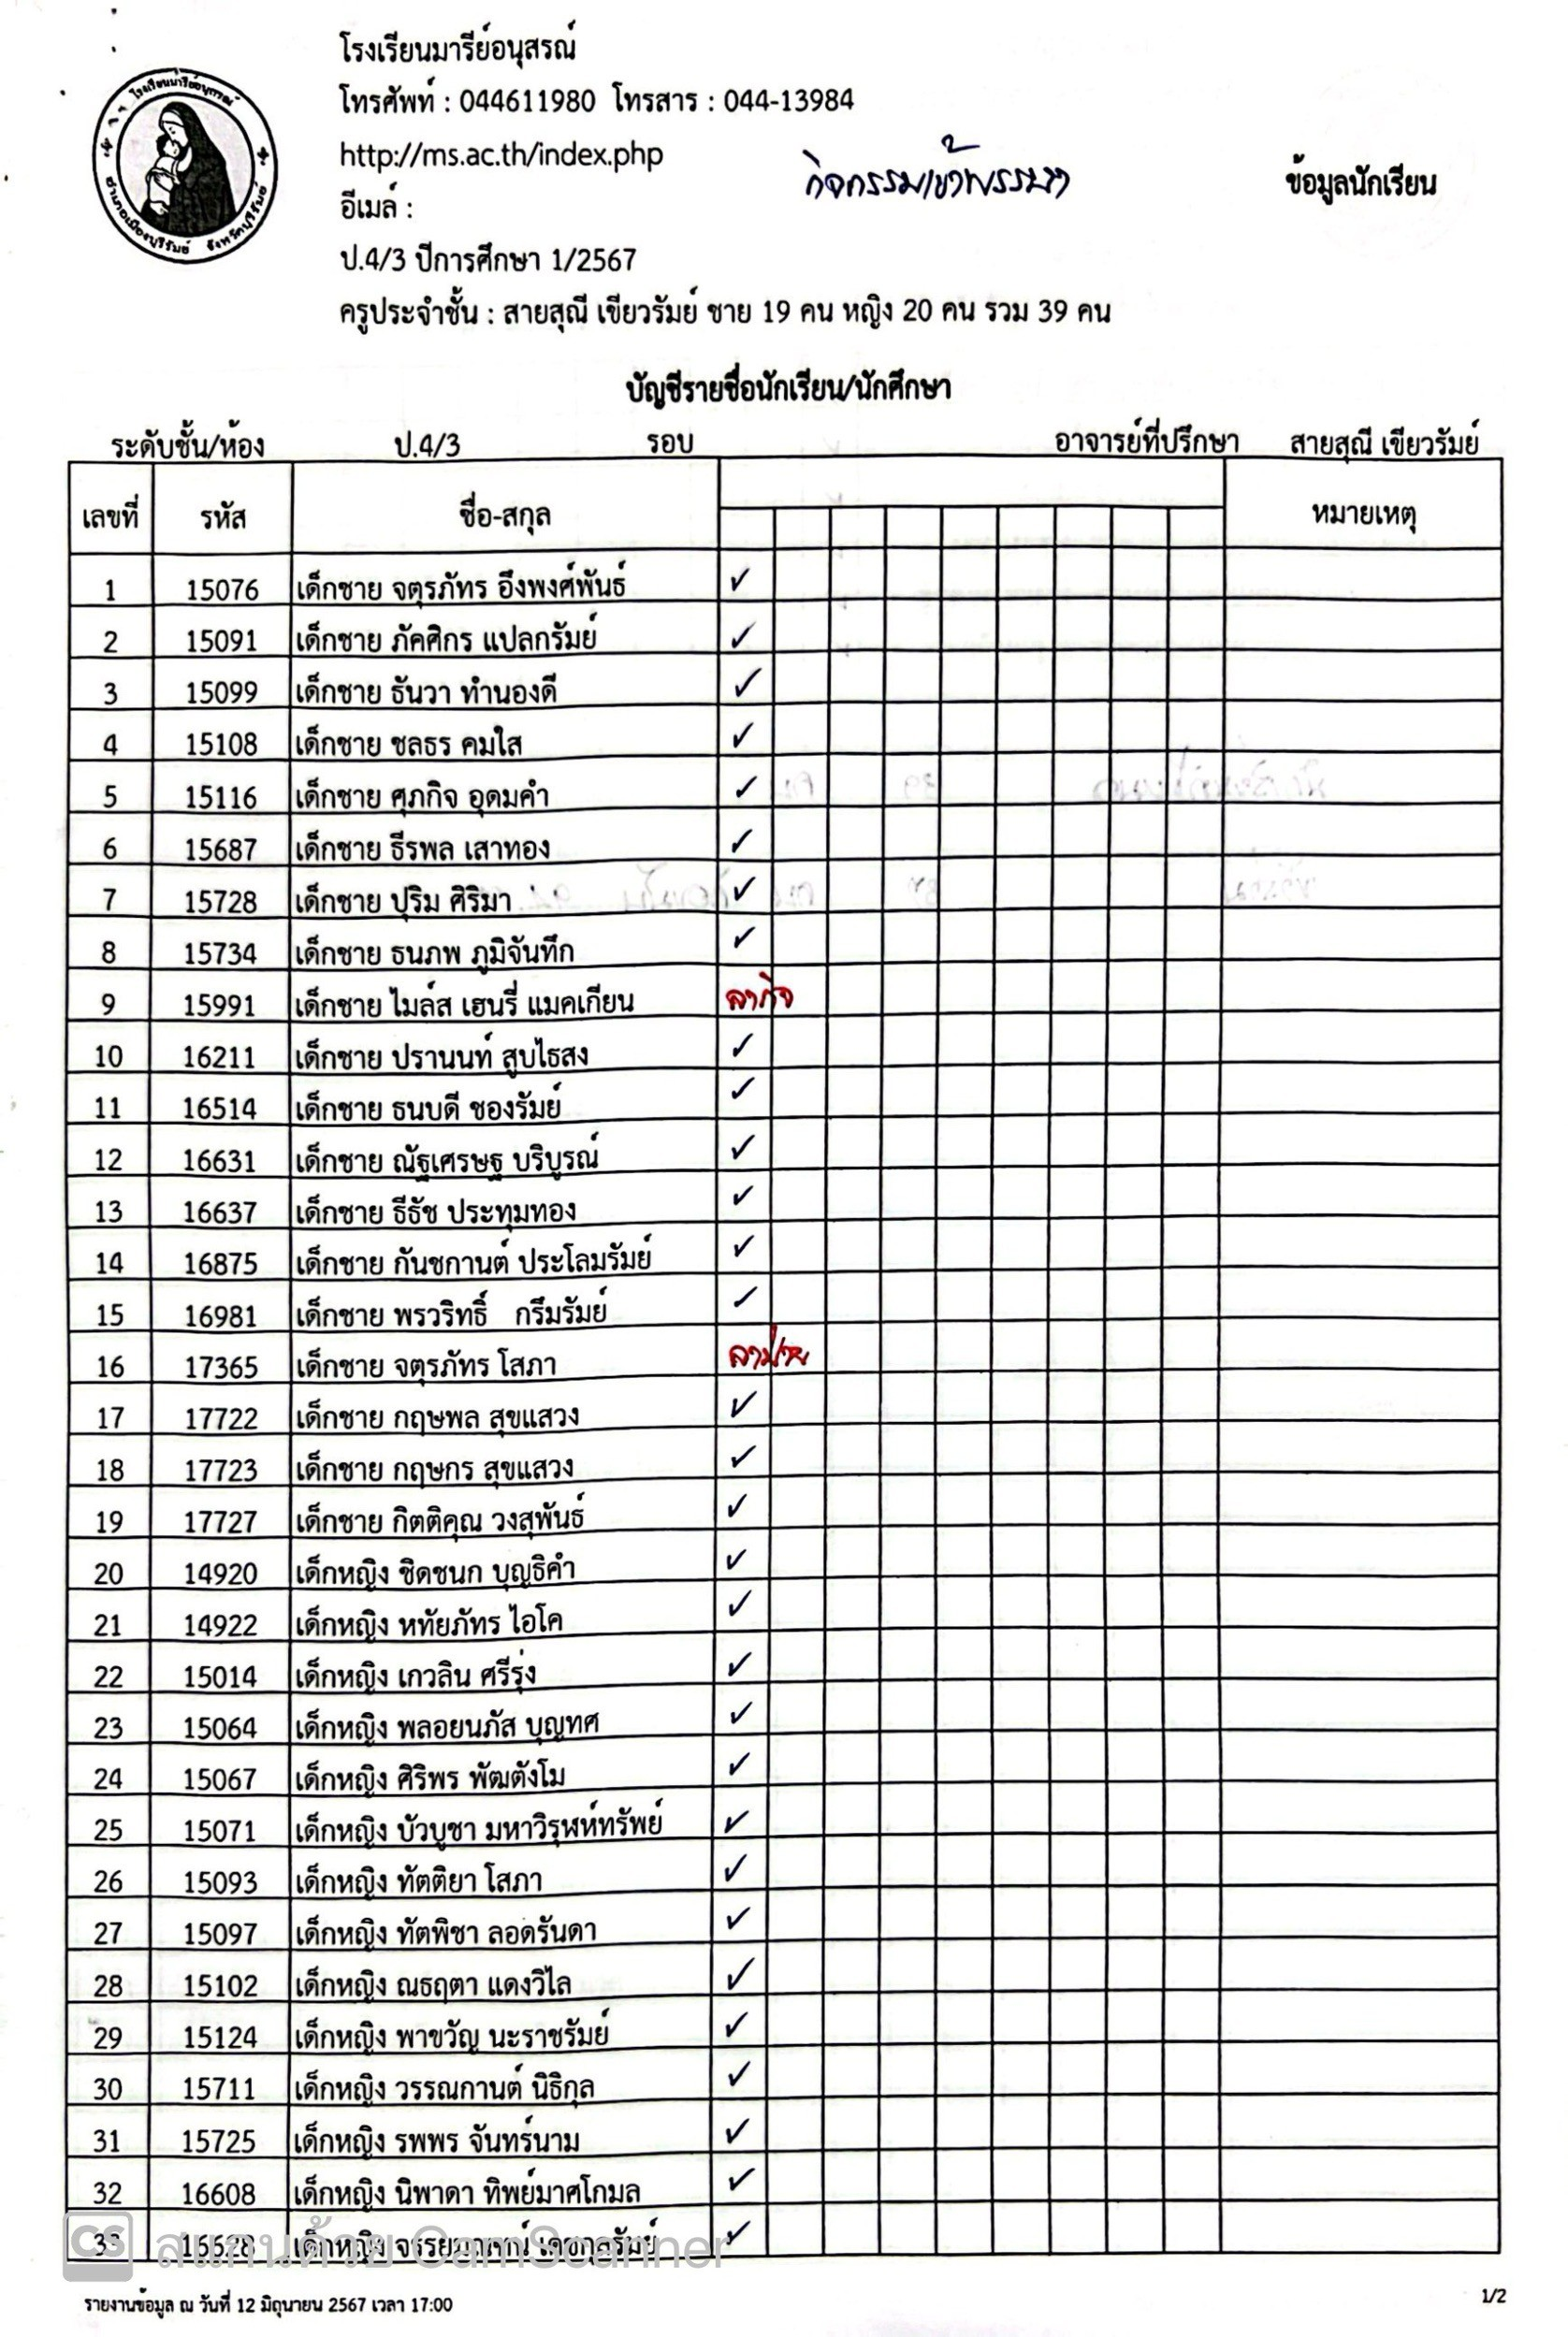 โรงเรียนมารีย์อนุสรณ์
โทรศัพท์ : 044611980 โทรสาร : 044-13984
http://ms.ac.th/index.php
กิจกรรมเข้าพรรษา
ข้อมูลนักเรียน
อีเมล์ :
ป.4/3 ปีการศึกษา 1/2567
ครูประจำชั้น : สายสุณี เขียวรัมย์ ชาย 19 คน หญิง 20 คน รวม 39 คน
บัญชีรายชื่อนักเรียน/นักศึกษา
ระดับชั้น/ห้อง ป.4/3 รอบ อาจารย์ที่ปรึกษา สายสุณี เขียวรัมย์
เลขที่ รหัส ชื่อ-สกุล หมายเหตุ
1 15076 เด็กชาย จตุรภัทร อึงพงศ์พันธ์ ✓
2 15091 เด็กชาย ภัคศิกร แปลกรัมย์ ✓
3 15099 เด็กชาย ธันวา ทำนองดี ✓
4 15108 เด็กชาย ชลธร คมใส ✓
5 15116 เด็กชาย ศุภกิจ อุดมคำ ✓
6 15687 เด็กชาย ธีรพล เสาทอง ✓
7 15728 เด็กชาย ปุริม ศิริมา ✓
8 15734 เด็กชาย ธนภพ ภูมิจันทึก ✓
9 15991 เด็กชาย ไมล์ส เฮนรี่ แมคเกียน ลากิจ
10 16211 เด็กชาย ปรานนท์ สูบไธสง ✓
11 16514 เด็กชาย ธนบดี ชองรัมย์ ✓
12 16631 เด็กชาย ณัฐเศรษฐ บริบูรณ์ ✓
13 16637 เด็กชาย ธีธัช ประทุมทอง ✓
14 16875 เด็กชาย กันชกานต์ ประโลมรัมย์ ✓
15 16981 เด็กชาย พรวริทธิ์ กรึมรัมย์ ✓
16 17365 เด็กชาย จตุรภัทร โสภา ลาป่วย
17 17722 เด็กชาย กฤษพล สุขแสวง ✓
18 17723 เด็กชาย กฤษกร สุขแสวง ✓
19 17727 เด็กชาย กิตติคุณ วงสุพันธ์ ✓
20 14920 เด็กหญิง ชิดชนก บุญธิคำ ✓
21 14922 เด็กหญิง หทัยภัทร ไอโค ✓
22 15014 เด็กหญิง เกวลิน ศรีรุ่ง ✓
23 15064 เด็กหญิง พลอยนภัส บุญทศ ✓
24 15067 เด็กหญิง ศิริพร พัฒตังโม ✓
25 15071 เด็กหญิง บัวบูชา มหาวิรุฬห์ทรัพย์ ✓
26 15093 เด็กหญิง ทัตติยา โสภา ✓
27 15097 เด็กหญิง ทัตพิชา ลอดรันดา ✓
28 15102 เด็กหญิง ณธฤตา แดงวิไล ✓
29 15124 เด็กหญิง พาขวัญ นะราชรัมย์ ✓
30 15711 เด็กหญิง วรรณกานต์ นิธิกุล ✓
31 15725 เด็กหญิง รพพร จันทร์นาม ✓
32 16608 เด็กหญิง นิพาดา ทิพย์มาศโกมล ✓
33 16628 เด็กหญิง ✓
CS สแกนด้วย CamScanner
รายงานข้อมูล ณ วันที่ 12 มิถุนายน 2567 เวลา 17:00
1/2